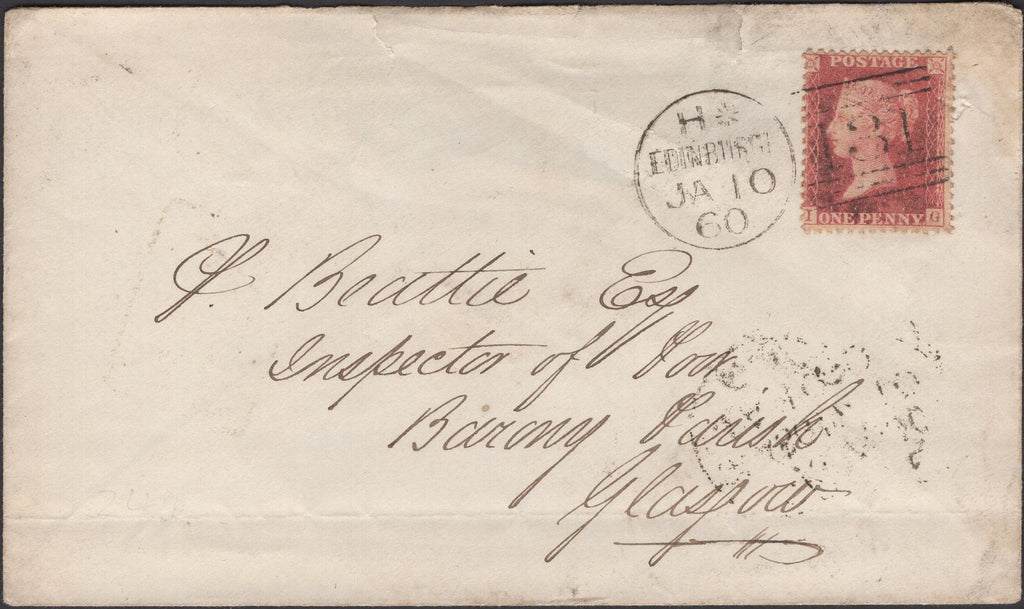 POSTAGE
131
I ONE PENNY G
H *
EDINBURGH
JA 10
60
Beattie Esq
Inspector of Poor
Barony Parish
Glasgow